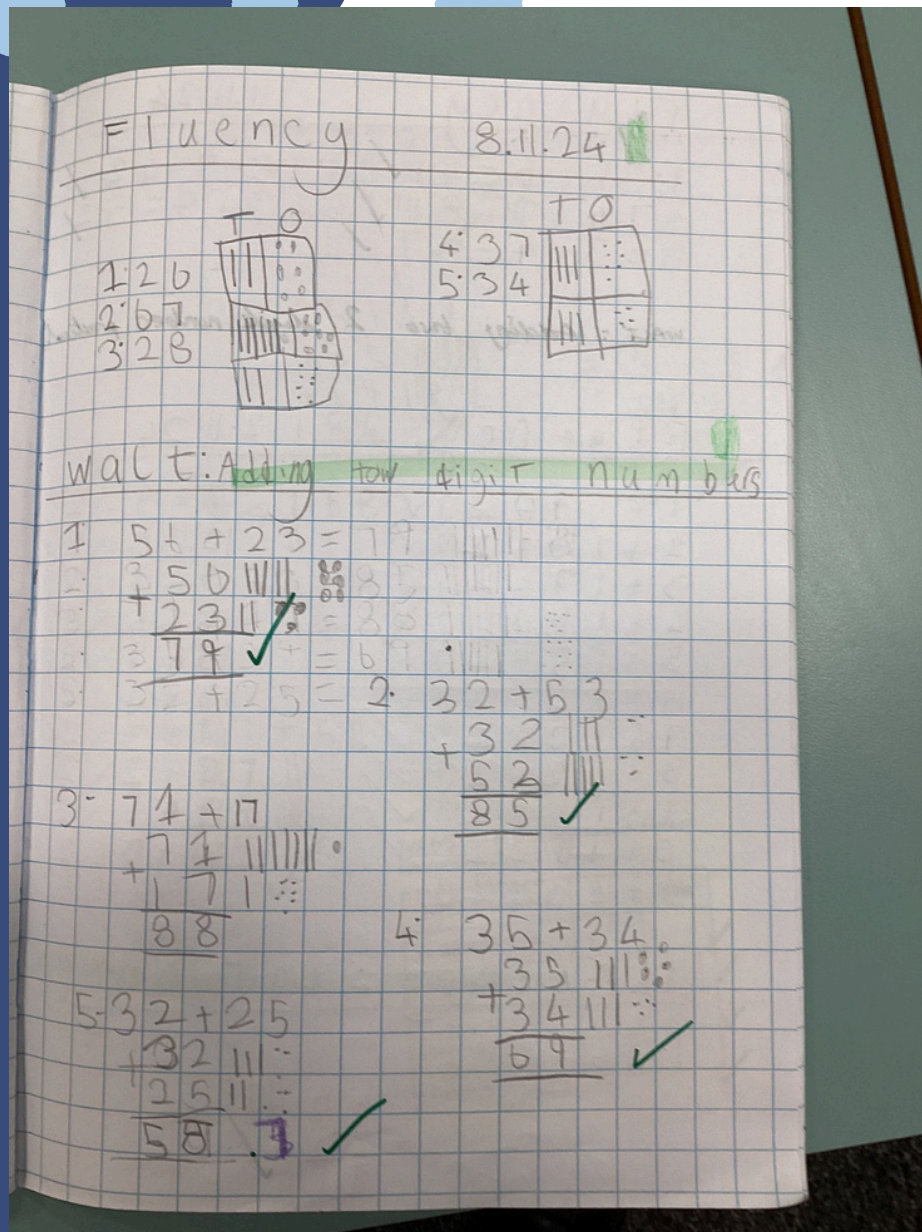 Fluency 8.11.24
T O
T O
1·26
2·67
3·28
4·37
5·34
Walt: Adding tow digit numbers
1 56 + 23 = 79
56
+ 23
79
2· 32 + 53
32
+ 52
85
3· 71 + 17
71
+ 17
88
4· 35 + 34
35
+ 34
69
5·32 + 25
+ 32
25
58